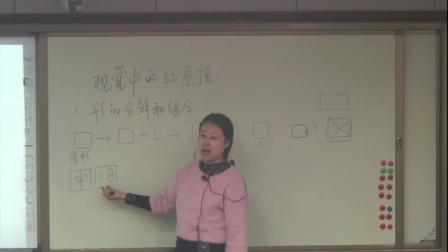 视觉中的红屋顶
1 形的分解和组合
图形